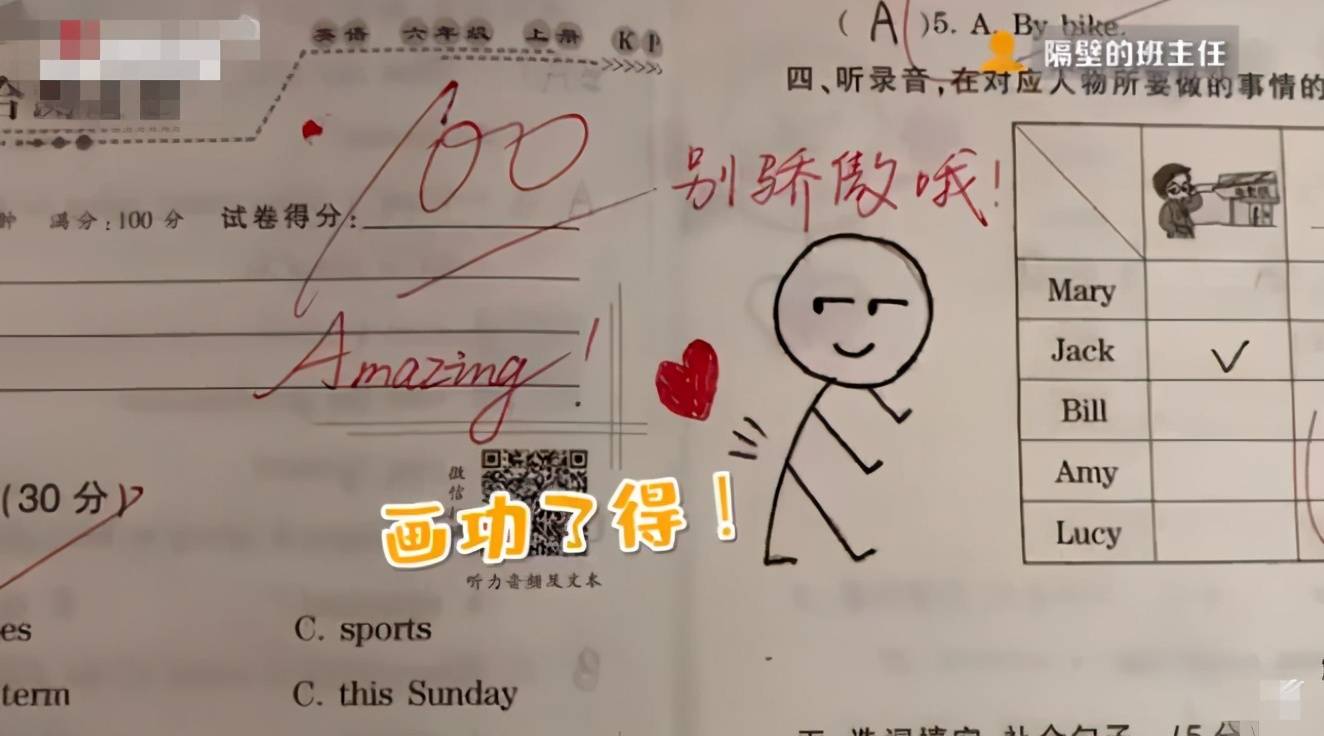 英语 六年级 上册 KP
100
满分:100分 试卷得分:
Amazing!
(30分)
微信
听力音频及文本
画功了得!
es
C. sports
term
C. this Sunday
(A)5. A. By bike.
隔壁的班主任
四、听录音,在对应人物所要做的事情的
别骄傲哦!
Mary
Jack ✓
Bill
Amy
Lucy